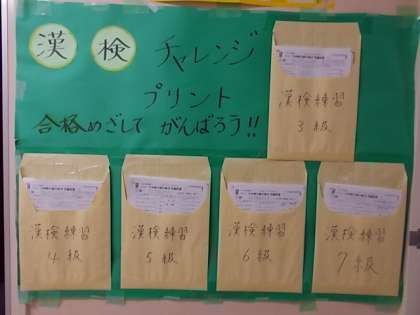 漢検 チャレンジ
プリント
合格めざして がんばろう!!
漢検練習
3級
漢検練習
4級
漢検練習
5級
漢検練習
6級
漢検練習
7級